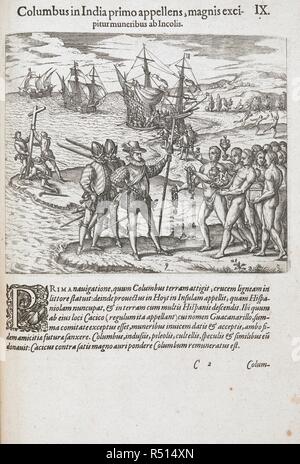 Columbus in India primo appellens, magnis exci- IX.
pitur muneribus ab Incolis.
PRIMA nauigatione, quum Columbus terram attigit, crucem ligneam in
littore statuit: deinde prouectus in Hayt in Insulam appellit, quam Hispa-
niolam nuncupat, & in terram cum multis Hispanis descendit. Ibi quum
ab eius loci Cacico (regulum ita appellant) cui nomen Guacanarillo, sum-
ma comitate exceptus esset, muneribus inuicem datis & acceptis, ambo fi-
dem amicitiæ futuræ sanxere. Columbus, indusiis, pileolis, cultellis, speculis & similibus eũ
donauit: Cacicus contra satis magno auri pondere Columbum remuneratus est.
C 2 Colum-
alamy
www.alamy.com - R514XN